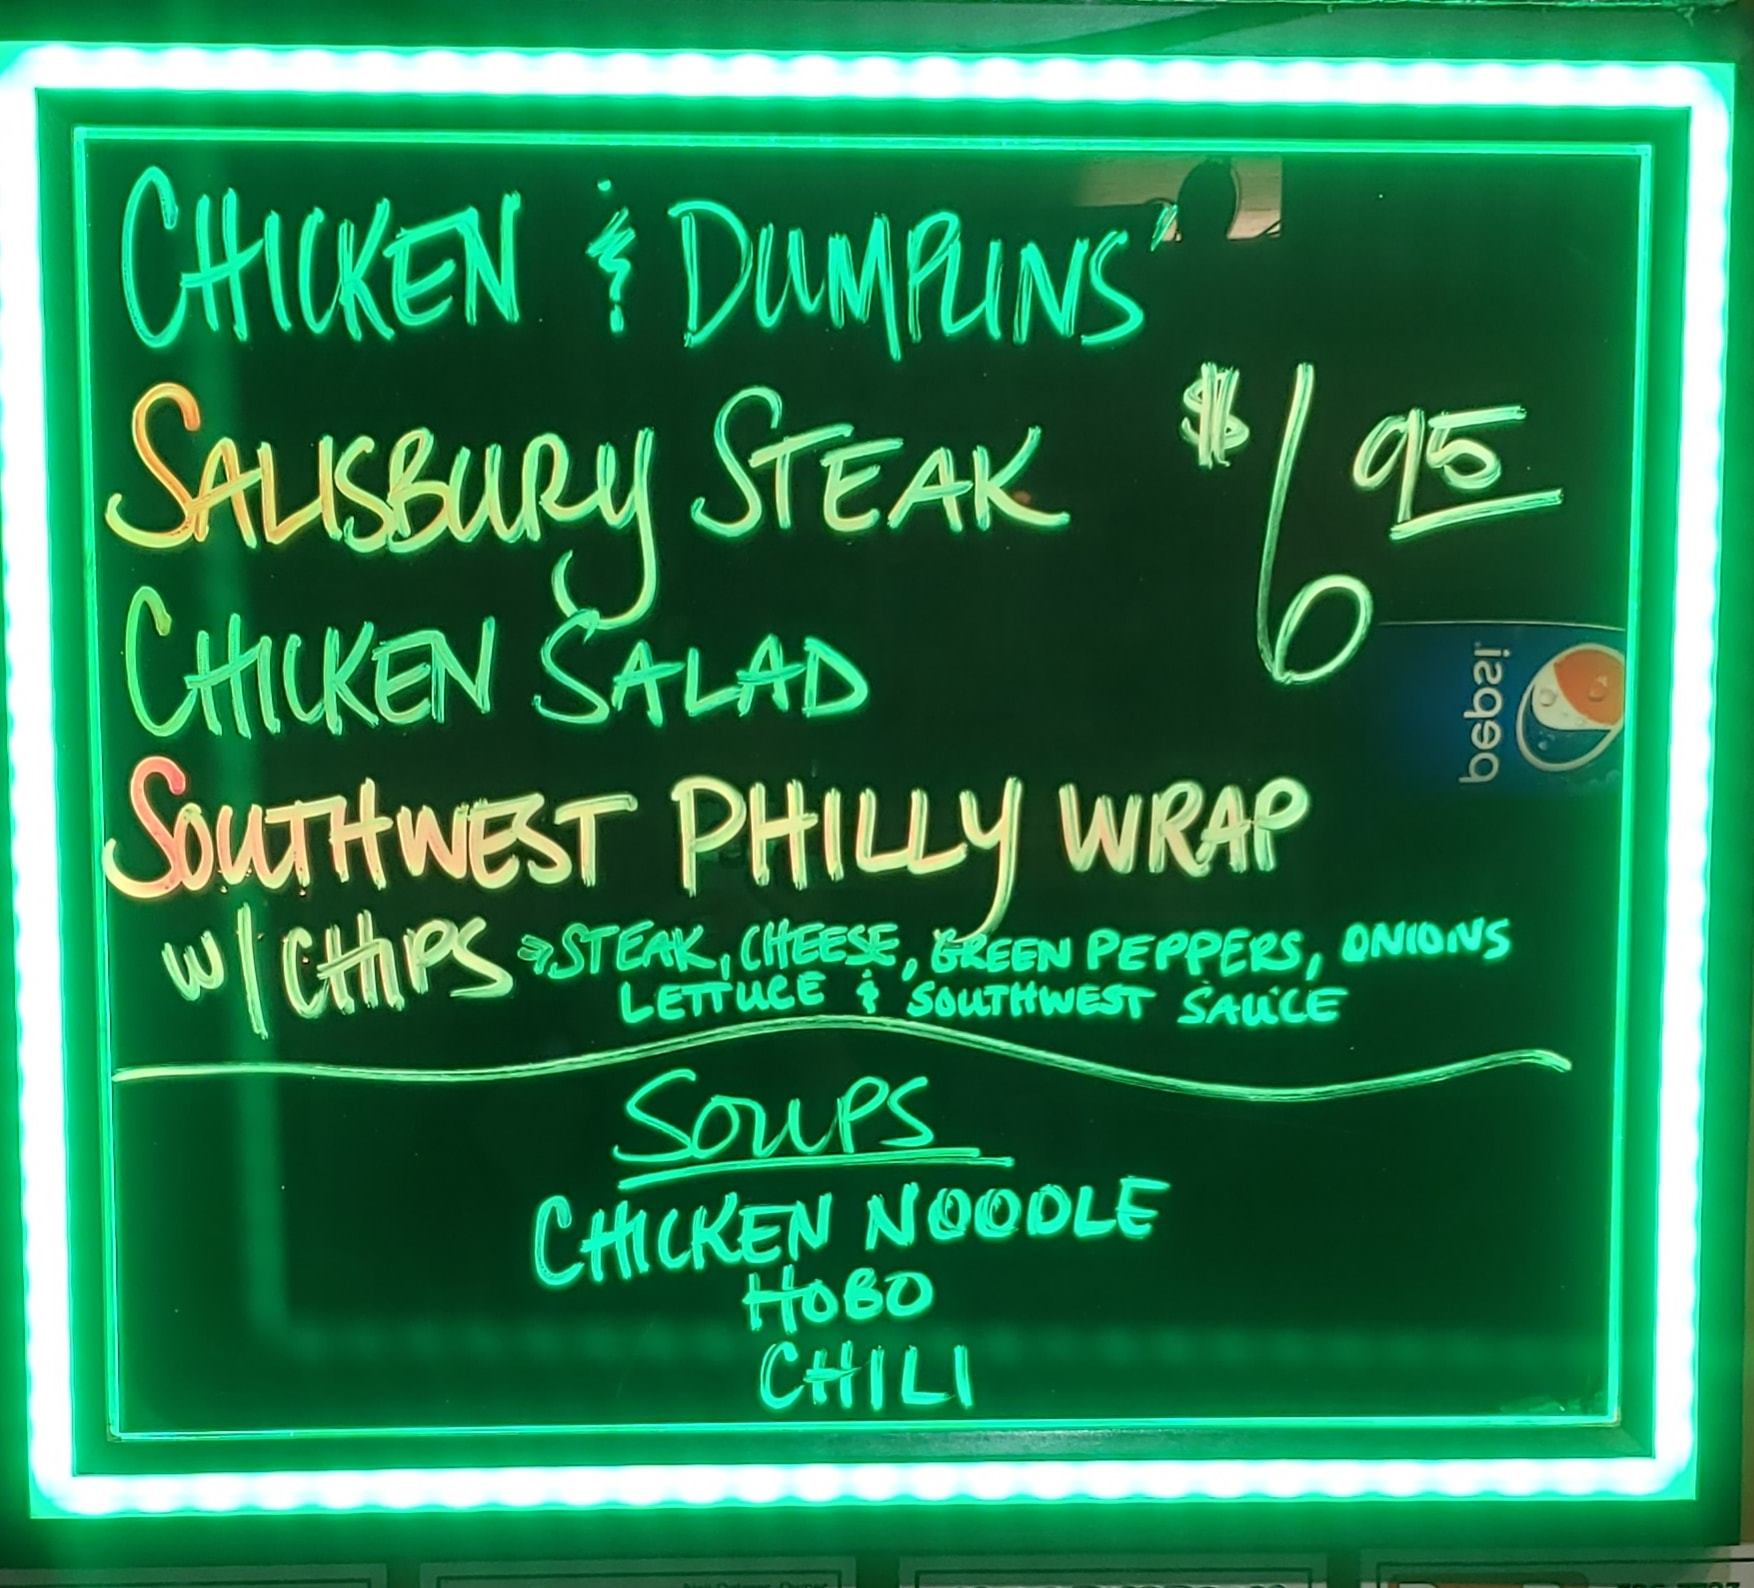 CHICKEN & DUMPLINS'
SALISBURY STEAK $6 95
CHICKEN SALAD
pepsi
SOUTHWEST PHILLY WRAP
W/ CHIPS → STEAK, CHEESE, GREEN PEPPERS, ONIONS
LETTUCE & SOUTHWEST SAUCE
SOUPS
CHICKEN NOODLE
HOBO
CHILI